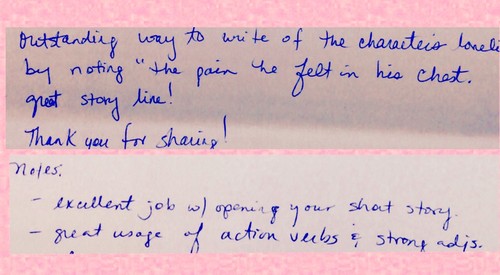 Outstanding way to write of the character's loneli
by noting "the pain he felt in his chest.
great story line!
Thank you for sharing!
Notes:
- excellent job w/ opening your short story.
- great usage of action verbs & strong adjs.